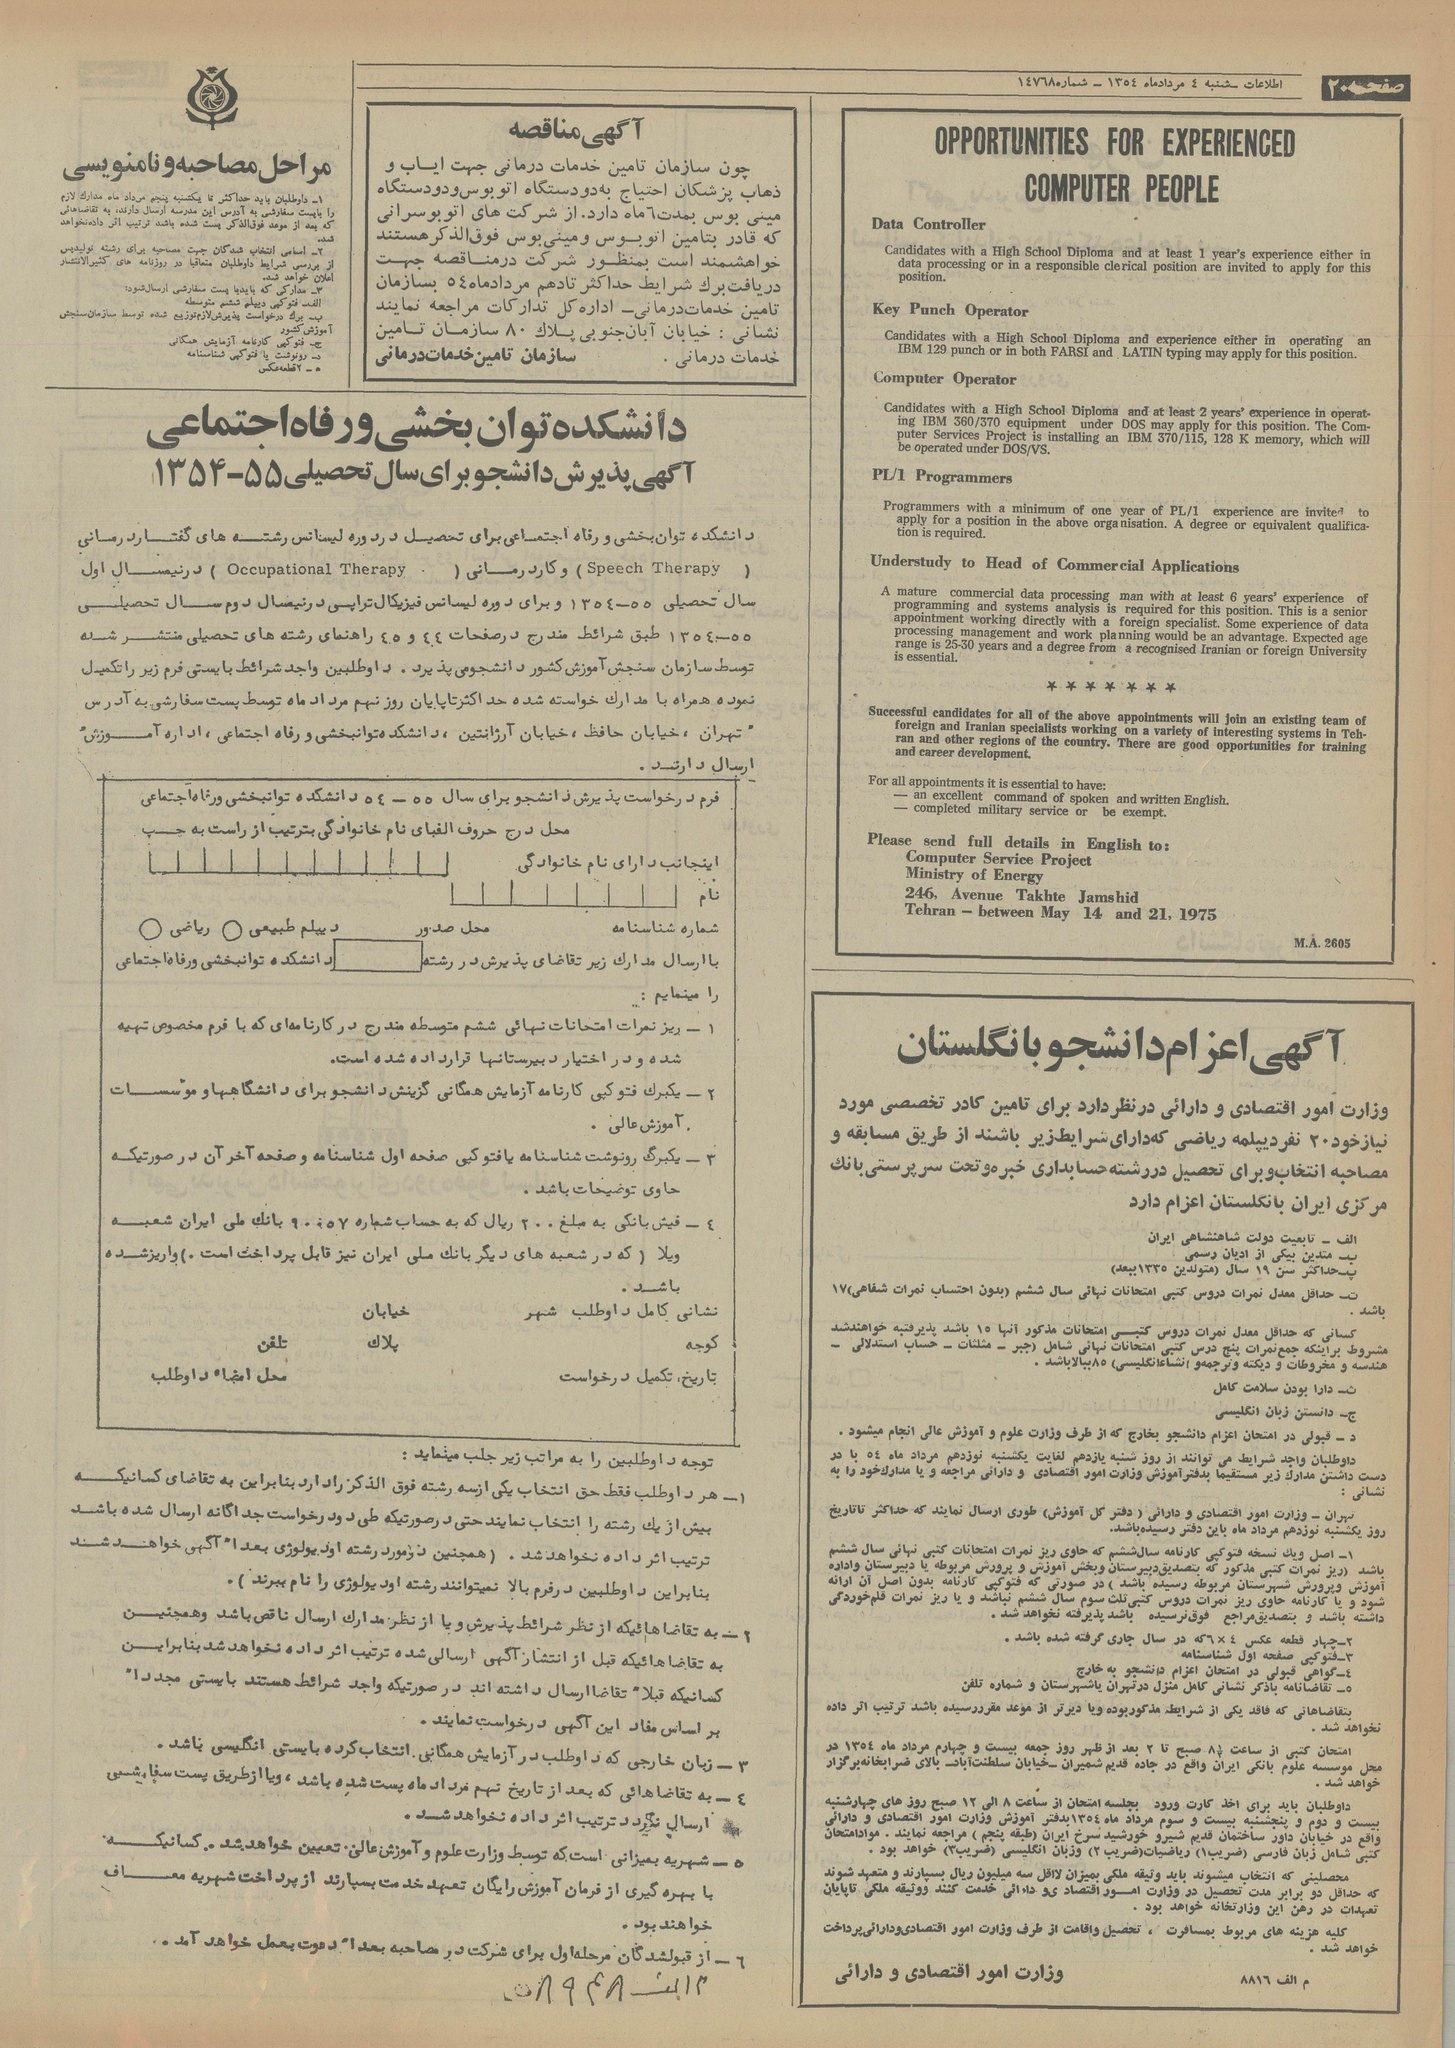 صفحه ۲۰
اطلاعات ـ شنبه ٤ مردادماه ۱۳٥٤ ـ شماره ۱٤۷٦۸
OPPORTUNITIES FOR EXPERIENCED
COMPUTER PEOPLE
Data Controller
Candidates with a High School Diploma and at least 1 year's experience either in
data processing or in a responsible clerical position are invited to apply for this
position.
Key Punch Operator
Candidates with a High School Diploma and experience either in operating an
IBM 129 punch or in both FARSI and LATIN typing may apply for this position.
Computer Operator
Candidates with a High School Diploma and at least 2 years' experience in operat-
ing IBM 360/370 equipment under DOS may apply for this position. The Com-
puter Services Project is installing an IBM 370/115, 128 K memory, which will
be operated under DOS/VS.
PL/1 Programmers
Programmers with a minimum of one year of PL/1 experience are invited to
apply for a position in the above organisation. A degree or equivalent qualifica-
tion is required.
Understudy to Head of Commercial Applications
A mature commercial data processing man with at least 6 years' experience of
programming and systems analysis is required for this position. This is a senior
appointment working directly with a foreign specialist. Some experience of data
processing management and work planning would be an advantage. Expected age
range is 25-30 years and a degree from a recognised Iranian or foreign University
is essential.
★ ★ ★ ★ ★ ★ ★
Successful candidates for all of the above appointments will join an existing team of
foreign and Iranian specialists working on a variety of interesting systems in Teh-
ran and other regions of the country. There are good opportunities for training
and career development.
For all appointments it is essential to have:
— an excellent command of spoken and written English.
— completed military service or be exempt.
Please send full details in English to:
Computer Service Project
Ministry of Energy
246, Avenue Takhte Jamshid
Tehran — between May 14 and 21, 1975
M.A. 2605
آگهی مناقصه
چون سازمان تامین خدمات درمانی جهت ایاب و
ذهاب پزشکان احتیاج به دو دستگاه اتوبوس و دو دستگاه
مینی بوس بمدت ٦ ماه دارد. از شرکت های اتوبوسرانی
که قادر بتامین اتوبوس و مینی بوس فوق الذکر هستند
خواهشمند است بمنظور شرکت در مناقصه جهت
دریافت برك شرایط حداکثر تا دهم مردادماه ٥٤ بسازمان
تامین خدمات درمانی ـ اداره کل تدارکات مراجعه نمایند
نشانی : خیابان آبان جنوبی پلاك ۸۰ سازمان تامین
خدمات درمانی . سازمان تامین خدمات درمانی
مراحل مصاحبه و نامنویسی
۱ـ داوطلبان باید حداکثر تا یکشنبه پنجم مرداد ماه مدارك لازم
را باپست سفارشی به آدرس این مدرسه ارسال دارند، به تقاضاهائی
که بعد از موعد فوق‌الذکر پست شده باشد ترتیب اثر داده نخواهد
شد.
۲ـ اسامی انتخاب شدگان جهت مصاحبه برای رشته تولیدپس
از بررسی شرایط داوطلبان متعاقبا در روزنامه های کثیرالانتشار
اعلان خواهد شد.
۳ـ مدارکی که بایدبا پست سفارشی ارسال شود:
الف‌ـ فتوکپی دیپلم ششم متوسطه
ب‌ـ برك درخواست پذیرش لازم توزیع شده توسط سازمان سنجش
آموزش کشور
ج‌ـ فتوکپی کارنامه آزمایش همگانی
د‌ـ رونوشت یا فتوکپی شناسنامه
ه ـ ۲ قطعه عکس
دانشکده توان بخشی و رفاه اجتماعی
آگهی پذیرش دانشجو برای سال تحصیلی ۵۵-۱۳۵۴
دانشکده توان بخشی و رفاه اجتماعی برای تحصیل در دوره لیسانس رشته های گفتار درمانی
( Speech Therapy ) و کار درمانی ( Occupational Therapy ) در نیمسال اول
سال تحصیلی ٥٥-۱۳٥٤ و برای دوره لیسانس فیزیکال تراپی در نیمسال دوم سال تحصیلی
٥٥-۱۳٥٤ طبق شرائط مندرج در صفحات ٤٤ و ٤٥ راهنمای رشته های تحصیلی منتشر شده
توسط سازمان سنجش آموزش کشور دانشجو می پذیرد . داوطلبین واجد شرائط بایستی فرم زیر را تکمیل
نموده همراه با مدارك خواسته شده حداکثر تا پایان روز نهم مرداد ماه توسط پست سفارشی به آدرس
" تهران ، خیابان حافظ ، خیابان آرژانتین ، دانشکده توانبخشی و رفاه اجتماعی ، اداره آموزش "
ارسال دارند .
فرم درخواست پذیرش دانشجو برای سال ٥٥ - ٥٤ دانشکده توانبخشی و رفاه اجتماعی
محل درج حروف الفبای نام خانوادگی بترتیب از راست به چپ
اینجانب دارای نام خانوادگی
نام
شماره شناسنامه محل صدور دیپلم طبیعی ریاضی
با ارسال مدارك زیر تقاضای پذیرش در رشته دانشکده توانبخشی و رفاه اجتماعی
را مینمایم :
۱ - ریز نمرات امتحانات نهائی ششم متوسطه مندرج در کارنامه‌ای که با فرم مخصوص تهیه
شده و در اختیار دبیرستانها قرار داده شده است.
۲ - یکبرك فتوکپی کارنامه آزمایش همگانی گزینش دانشجو برای دانشگاهها و مؤسسات
آموزش عالی .
۳ - یکبرگ رونوشت شناسنامه یا فتوکپی صفحه اول شناسنامه و صفحه آخر آن در صورتیکه
حاوی توضیحات باشد .
٤ - فیش بانکی به مبلغ ۲۰۰ ریال که به حساب شماره بانك ملی ایران شعبه
ویلا ( که در شعبه های دیگر بانك ملی ایران نیز قابل پرداخت است . ) واریز شده
باشد .
نشانی کامل داوطلب شهر خیابان
کوچه پلاك تلفن
تاریخ تکمیل درخواست محل امضاء داوطلب
توجه داوطلبین را به مراتب زیر جلب مینماید :
۱- هر داوطلب فقط حق انتخاب یکی از سه رشته فوق الذکر را دارد بنابراین به تقاضای کسانیکه
بیش از یك رشته را انتخاب نمایند حتی در صورتیکه طی دو درخواست جداگانه ارسال شده باشد
ترتیب اثر داده نخواهد شد . ( همچنین در مورد رشته اودیولوژی بعدا" آگهی خواهد شد
بنابراین داوطلبین در فرم بالا نمیتوانند رشته اودیولوژی را نام ببرند ) .
۲ - به تقاضا هائیکه از نظر شرائط پذیرش و یا از نظر مدارك ارسال ناقص باشد وهمچنین
به تقاضا هائیکه قبل از انتشار آگهی ارسالی شده ترتیب اثر داده نخواهد شد بنابراین
کسانیکه قبلا" تقاضا ارسال داشته اند در صورتیکه واجد شرائط هستند بایستی مجددا"
بر اساس مفاد این آگهی درخواست نمایند .
۳ - زبان خارجی که داوطلب در آزمایش همگانی انتخاب کرده بایستی انگلیسی باشد .
٤ - به تقاضا هائی که بعد از تاریخ نهم مرداد ماه پست شده باشد ، ویا از طریق پست سفارشی
ارسال نگردد ترتیب اثر داده نخواهد شد .
٥ - شهریه بمیزانی است که توسط وزارت علوم و آموزش عالی تعیین خواهد شد . کسانیکه
با بهره گیری از فرمان آموزش رایگان تعهد خدمت بسپارند از پرداخت شهریه معاف
خواهند بود .
٦ - از قبولشدگان مرحله اول برای شرکت در مصاحبه بعدا" دعوت بعمل خواهد آمد .
آگهی اعزام دانشجو بانگلستان
وزارت امور اقتصادی و دارائی در نظر دارد برای تامین کادر تخصصی مورد
نیاز خود ۲۰ نفر دیپلمه ریاضی که دارای شرایط زیر باشند از طریق مسابقه و
مصاحبه انتخاب و برای تحصیل در رشته حسابداری خبره و تحت سرپرستی بانك
مرکزی ایران بانگلستان اعزام دارد
الف - تابعیت دولت شاهنشاهی ایران
ب‌ـ متدین بیکی از ادیان رسمی
پ‌ـ حداکثر سن ۱۹ سال (متولدین ۱۳۳٥ ببعد)
ت‌ـ حداقل معدل نمرات دروس کتبی امتحانات نهائی سال ششم (بدون احتساب نمرات شفاهی) ۱۷
باشد .
کسانی که حداقل معدل نمرات دروس کتبی امتحانات مذکور آنها ۱٥ باشد پذیرفته خواهند شد
مشروط براینکه جمع نمرات پنج درس کتبی امتحانات نهائی شامل (جبر - مثلثات - حساب استدلالی -
هندسه و مخروطات و دیکته و ترجمه و انشاء انگلیسی) ۸٥ ببالا باشد .
ث‌ـ دارا بودن سلامت کامل
ج‌ـ دانستن زبان انگلیسی
د - قبولی در امتحان اعزام دانشجو بخارج که از طرف وزارت علوم و آموزش عالی انجام میشود .
داوطلبان واجد شرایط می توانند از روز شنبه یازدهم لغایت یکشنبه نوزدهم مرداد ماه ٥٤ با در
دست داشتن مدارك زیر مستقیما بدفتر آموزش وزارت امور اقتصادی و دارائی مراجعه و یا مدارك خود را به
نشانی :
تهران - وزارت امور اقتصادی و دارائی ( دفتر کل آموزش) طوری ارسال نمایند که حداکثر تا تاریخ
روز یکشنبه نوزدهم مرداد ماه باین دفتر رسیده باشد.
۱ـ اصل ویك نسخه فتوکپی کارنامه سال ششم که حاوی ریز نمرات امتحانات کتبی نهائی سال ششم
باشد (ریز نمرات کتبی مذکور که بتصدیق دبیرستان وبخش آموزش و پرورش مربوطه یا دبیرستان واداره
آموزش وپرورش شهرستان مربوطه رسیده باشد ) در صورتی که فتوکپی کارنامه بدون اصل آن ارائه
شود و یا کارنامه حاوی ریز نمرات دروس کتبی ثلث سوم سال ششم نباشد و یا ریز نمرات قلم خوردگی
داشته باشد و بتصدیق مراجع فوق نرسیده باشد پذیرفته نخواهد شد .
۲ـ چهار قطعه عکس ٤ × ٦ که در سال جاری گرفته شده باشد .
۳ـ فتوکپی صفحه اول شناسنامه
٤ـ گواهی قبولی در امتحان اعزام دانشجو به خارج
٥ـ تقاضانامه باذکر نشانی کامل منزل در تهران یاشهرستان و شماره تلفن
بتقاضاهائی که فاقد یکی از شرایط مذکور بوده ویا دیرتر از موعد مقرر رسیده باشد ترتیب اثر داده
نخواهد شد .
امتحان کتبی از ساعت ۸½ صبح تا ۲ بعد از ظهر روز جمعه بیست و چهارم مرداد ماه ۱۳٥٤ در
محل موسسه علوم بانکی ایران واقع در جاده قدیم شمیران ـ خیابان سلطنت آباد ـ بالای ضرابخانه برگزار
خواهد شد .
داوطلبان باید برای اخذ کارت ورود بجلسه امتحان از ساعت ۸ الی ۱۲ صبح روز های چهارشنبه
بیست و دوم و پنجشنبه بیست و سوم مرداد ماه ۱۳٥٤ بدفتر آموزش وزارت امور اقتصادی و دارائی
واقع در خیابان داور ساختمان قدیم شیرو خورشید سرخ ایران (طبقه پنجم ) مراجعه نمایند . مواد امتحان
کتبی شامل زبان فارسی (ضریب ۱) ریاضیات (ضریب ۲) وزبان انگلیسی (ضریب ۳) خواهد بود .
محصلینی که انتخاب میشوند باید وثیقه ملکی بمیزان لااقل سه میلیون ریال بسپارند و متعهد شوند
که حداقل دو برابر مدت تحصیل در وزارت امور اقتصادی و دارائی خدمت کنند ووثیقه ملکی تاپایان
تعهدات در رهن این وزارتخانه خواهد بود .
کلیه هزینه های مربوط بمسافرت ، تحصیل واقامت از طرف وزارت امور اقتصادی ودارائی پرداخت
خواهد شد .
م الف ۸۸۱٦ وزارت امور اقتصادی و دارائی